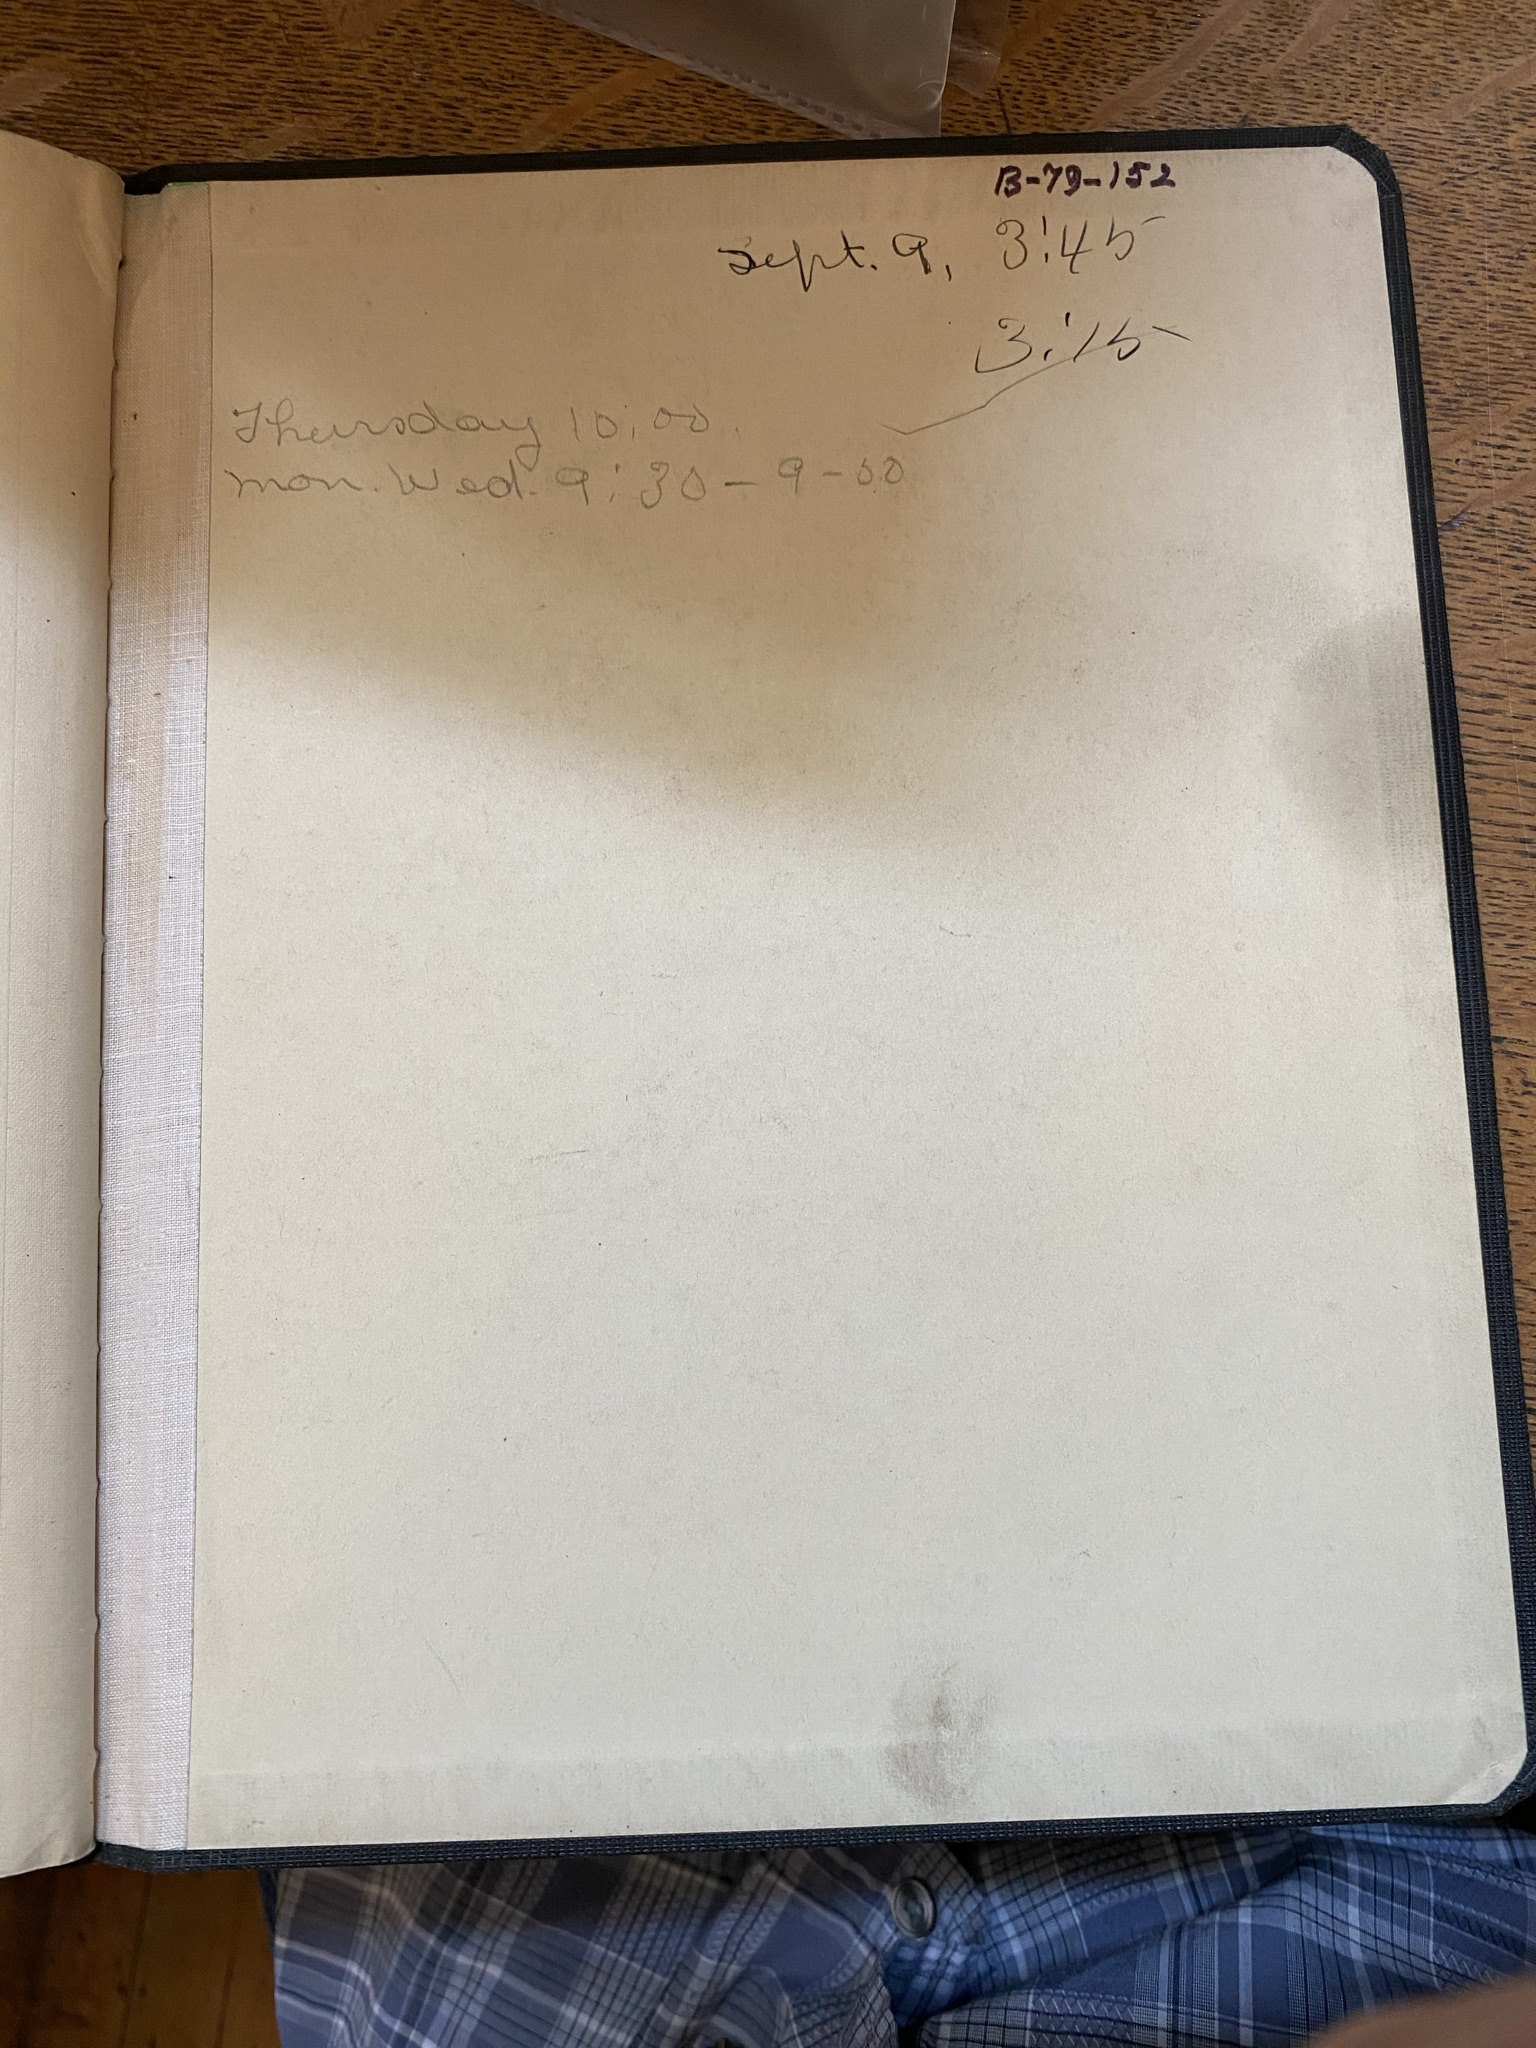 B-79-152
Sept. 9, 3:45
3:15
Thursday 10:00.
Mon. Wed. 9:30 - 9-00